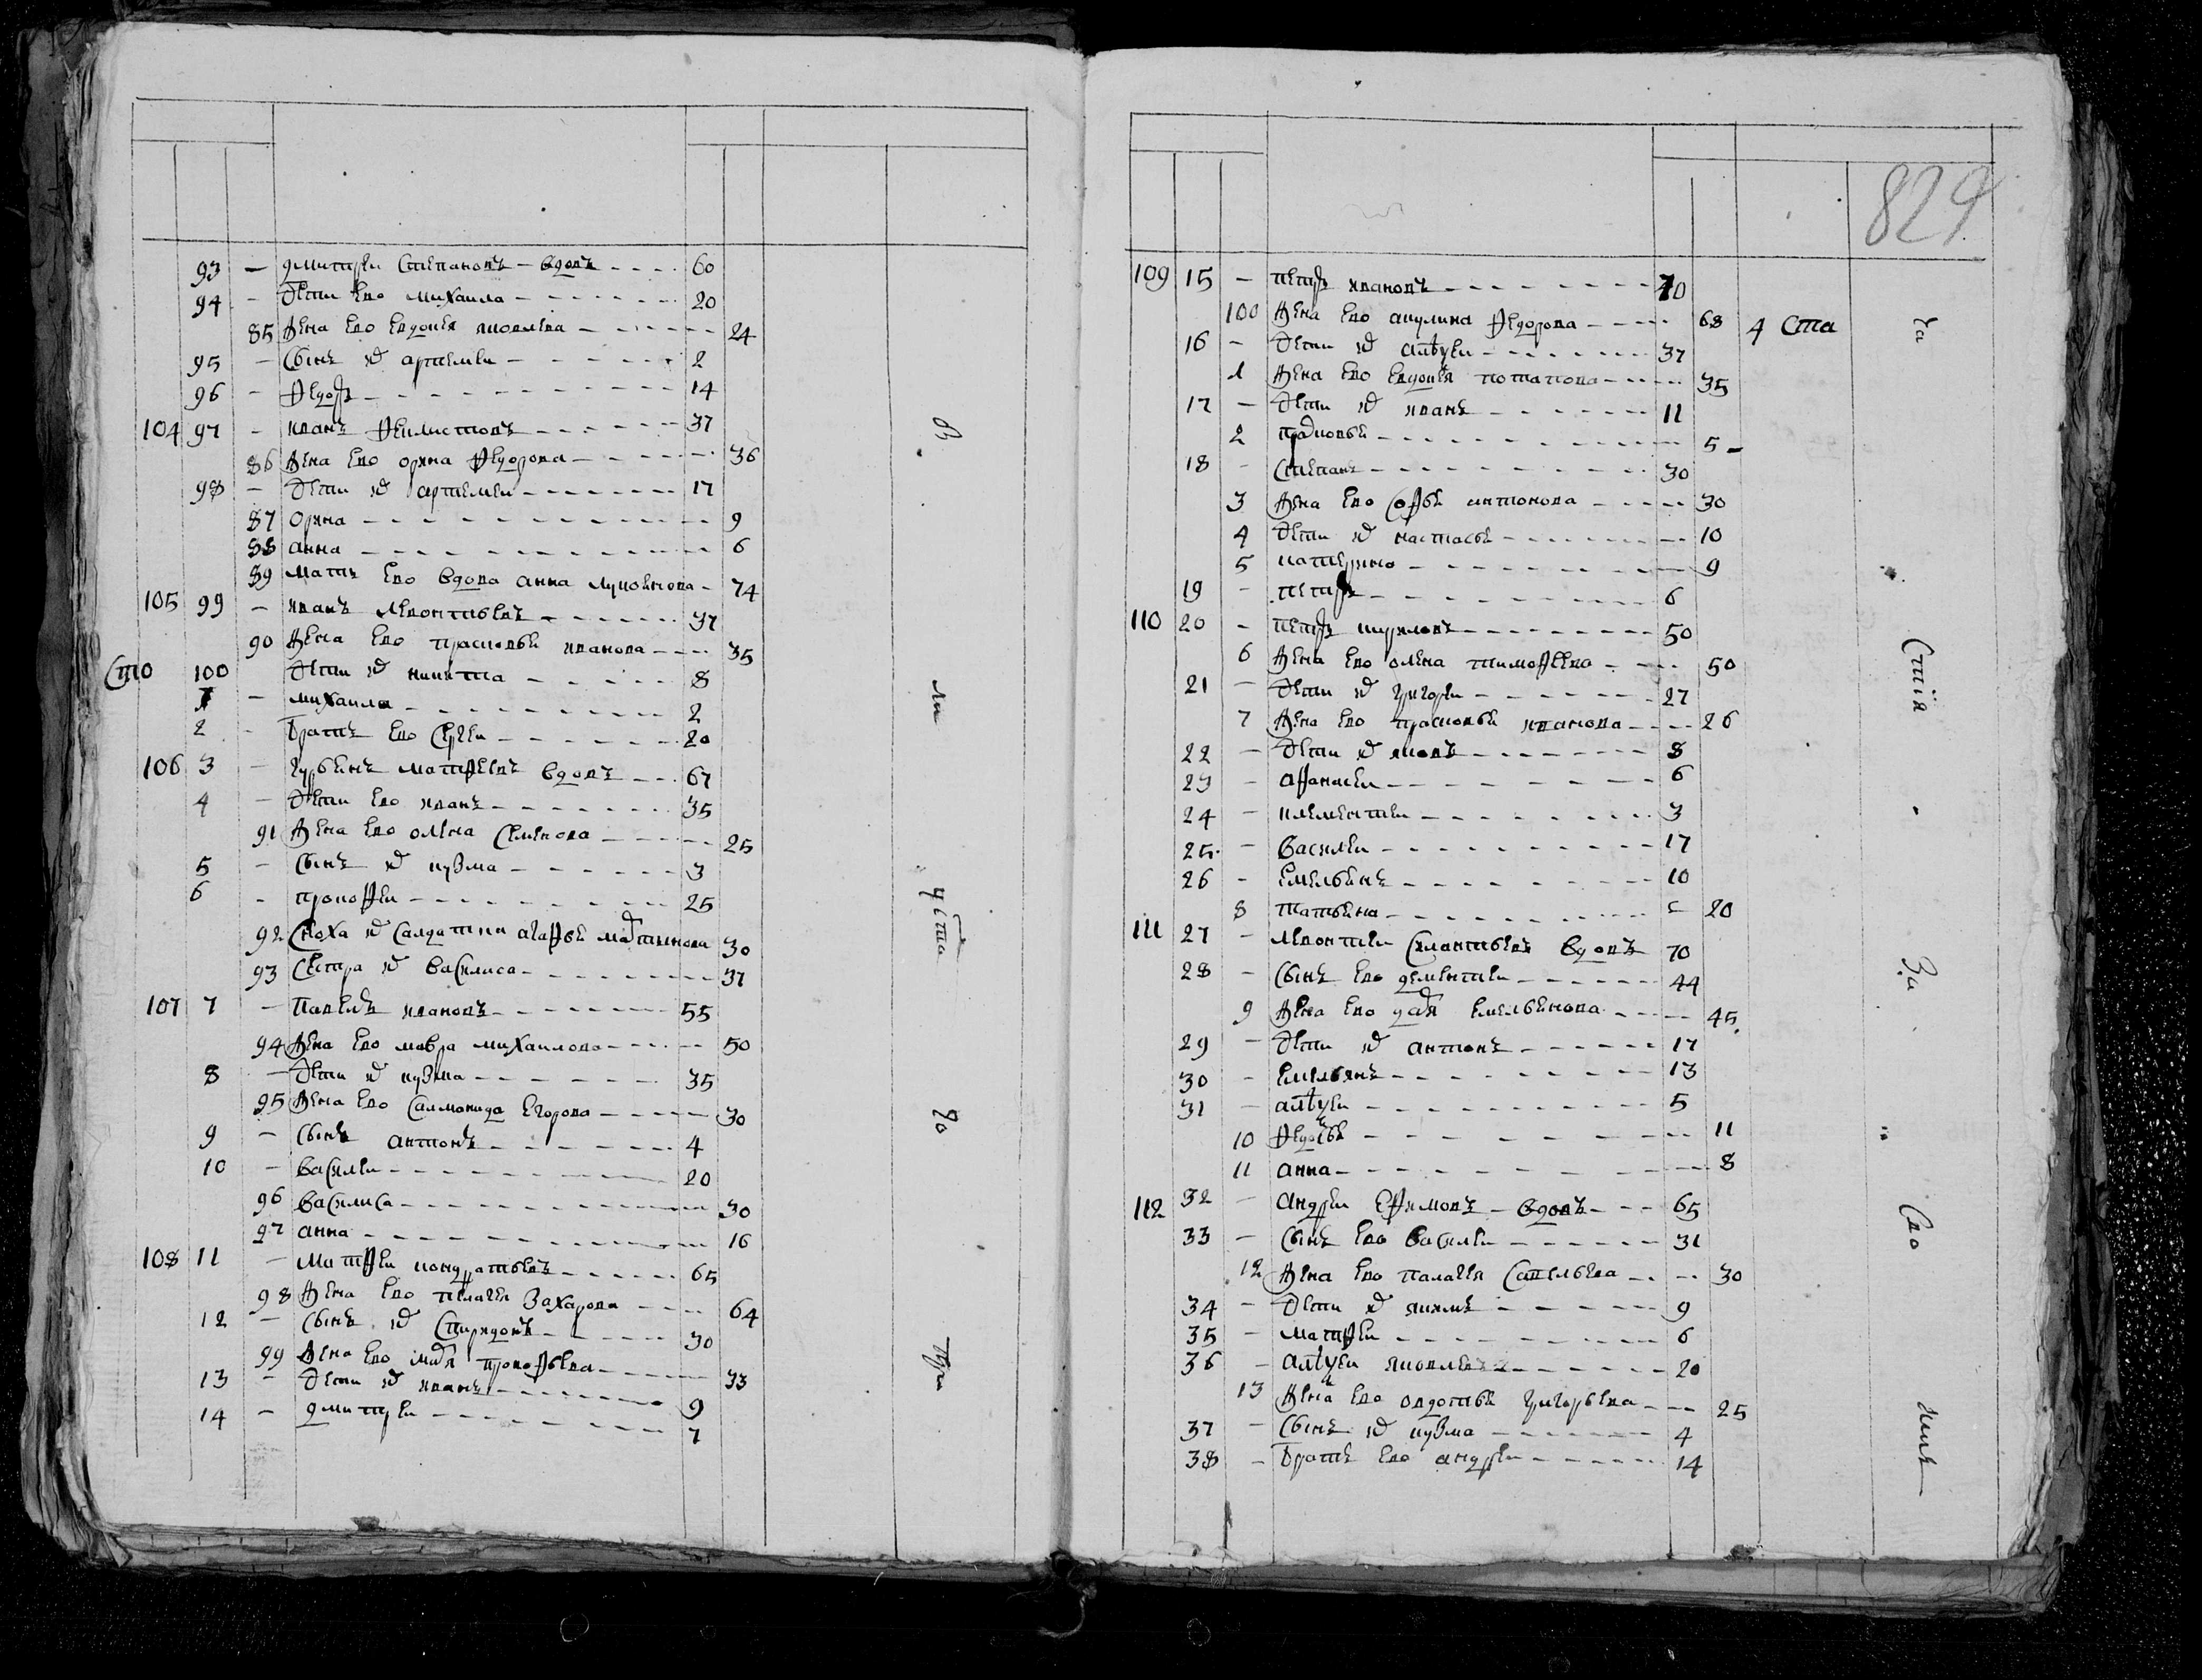 93 — дмитреи Степановъ — вдовъ - - - - 60
94 - дети ево михаила - - - - - - - 20
85 жена ево евдокея яковлева - - - - - - 24
95 - Сынъ их артемеи - - - - - - 2
96 - Федоръ - - - - - - - - 14
104 97 - иванъ Феклистовъ - - - - - - 37
86 жена ево орина Федорова - - - - - 36
98 - дети их артемеи - - - - - - - 17
87 Орина - - - - - - - - - - 9
88 анна - - - - - - - - - - 6
89 мать ево вдова анна лукоянова - 74
105 99 - иванъ левонтьевъ - - - - - - 37
90 жена ево прасковья иванова - - - - 35
Сто 100 дети их никита - - - - - 8
1 - михаила - - - - - - - - 2
2 - братъ ево Сергеи - - - - - - 20
106 3 - гурьянъ матфеевъ вдовъ - - - 67
4 - дети ево иванъ - - - - - - - 35
91 жена ево олена Семенова - - - - - 25
5 - Сынъ их кузма - - - - - - 3
6 - прокофеи - - - - - - - - 25
92 Сноха их Салдатки агафья мартынова 30
93 Сестра их василиса - - - - - - - - 37
107 7 - павелъ ивановъ - - - - - - - 55
94 жена ево мавра михаилова - - - - - 50
8 - дети их кузма - - - - - - - 35
95 жена ево Саломонида Егорова - - - - - 30
9 - Сынъ антонъ - - - - - - - 4
10 - василеи - - - - - - - - - 20
96 василиса - - - - - - - - - - 30
97 анна - - - - - - - - - - 16
108 11 - матфеи кондратьевъ - - - - - - 65
98 жена ево пелагея захарова - - - - 64
12 - Сынъ их Спиридонъ - - - - - - 30
99 жена ево марья прокофьева - - - - 33
13 - дети их иванъ - - - - - - - 9
14 - дмитреи - - - - - - - - 7
829
109 15 - петръ ивановъ - - - - - - - - 70
100 жена ево акулина Федорова - - - - 68 4 Ста
16 - дети их алексеи - - - - - - - 37
1 жена ево евдокея потапова - - - - - 35
17 - дети их иванъ - - - - - - 11
2 прасковья - - - - - - - - - - 5 -
18 - Степанъ - - - - - - - - - 30
3 жена ево Софья антонова - - - - 30
4 дети их настасья - - - - - - - - 10
5 катерина - - - - - - - - - - 9
19 - петръ - - - - - - - - - 6
110 20 - петръ кириловъ - - - - - - - - 50
6 жена ево олена тимофеева - - - - 50
21 - дети их григореи - - - - - - - 27
7 жена ево прасковья иванова - - - - 26
22 - дети их яковъ - - - - - - - 8
23 - афанасеи - - - - - - - - 6
24 - клементеи - - - - - - - - 3
25 - василеи - - - - - - - - - - 17
26 - емельянъ - - - - - - - - - 10
8 татьяна - - - - - - - - - - 20
111 27 - левонтеи Силантьевъ вдовъ 70
28 - Сынъ ево дементеи - - - - - - 44
9 жена ево дарья емельянова - - - - 45
29 - дети их антонъ - - - - - - 17
30 - емельянъ - - - - - - - - 13
31 - алексеи - - - - - - - - - 5
10 Федосья - - - - - - - - - - 11
11 анна - - - - - - - - - - 8
112 32 - андреи Ефимовъ - вдовъ - - - 65
33 - Сынъ ево василеи - - - - - - 31
12 жена ево палагея Савельева - - - - 30
34 - дети их якимъ - - - - - - 9
35 - матфеи - - - - - - - - - 6
36 - алексеи яковлевъ - - - - - - 20
13 жена ево овдотья григорьева - - - 25
37 - Сынъ их кузма - - - - - - - 4
38 - братъ ево андреи - - - - - - 14